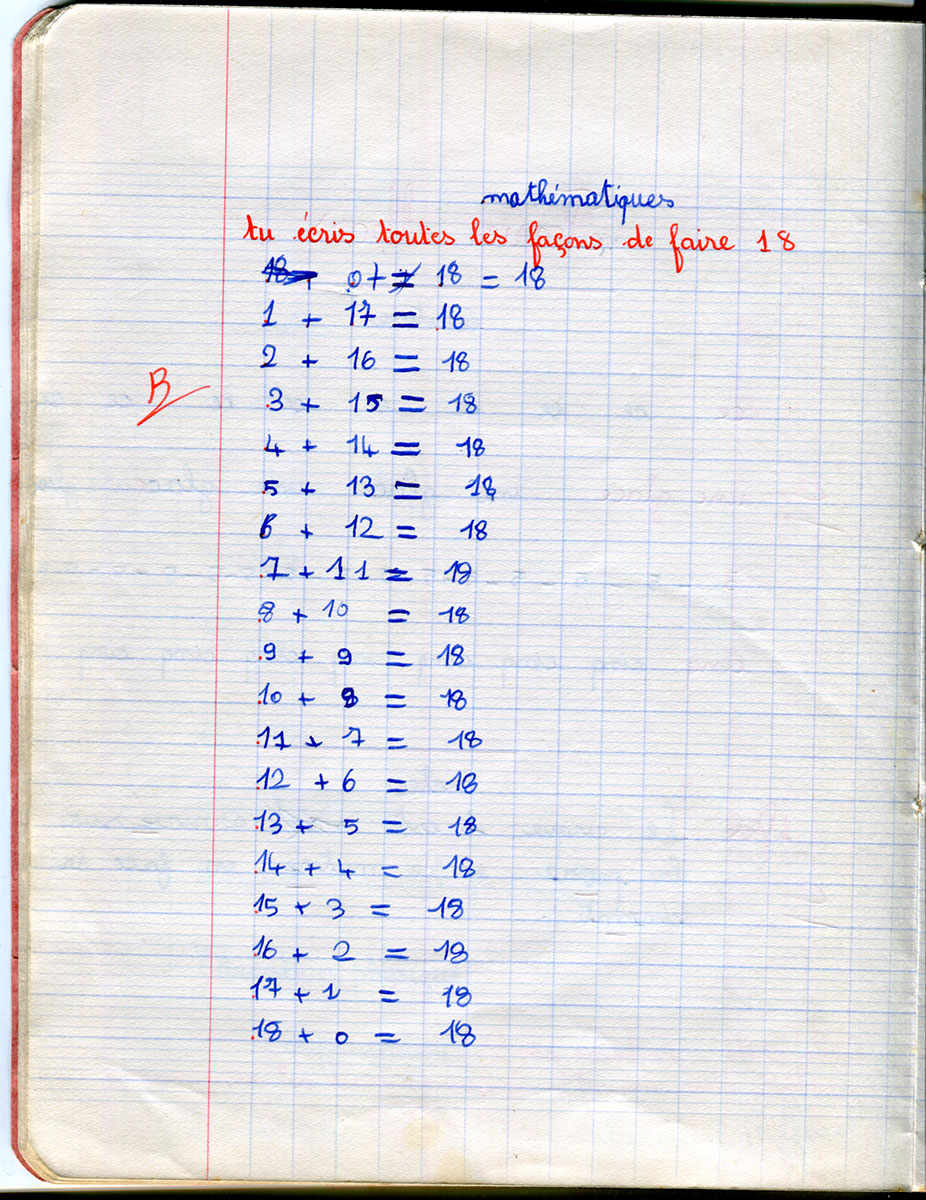 mathématiques
tu écris toutes les façons de faire 18
0 + 18 = 18
1 + 17 = 18
2 + 16 = 18
B
3 + 15 = 18
4 + 14 = 18
5 + 13 = 18
6 + 12 = 18
7 + 11 = 18
8 + 10 = 18
9 + 9 = 18
10 + 8 = 18
11 + 7 = 18
12 + 6 = 18
13 + 5 = 18
14 + 4 = 18
15 + 3 = 18
16 + 2 = 18
17 + 1 = 18
18 + 0 = 18